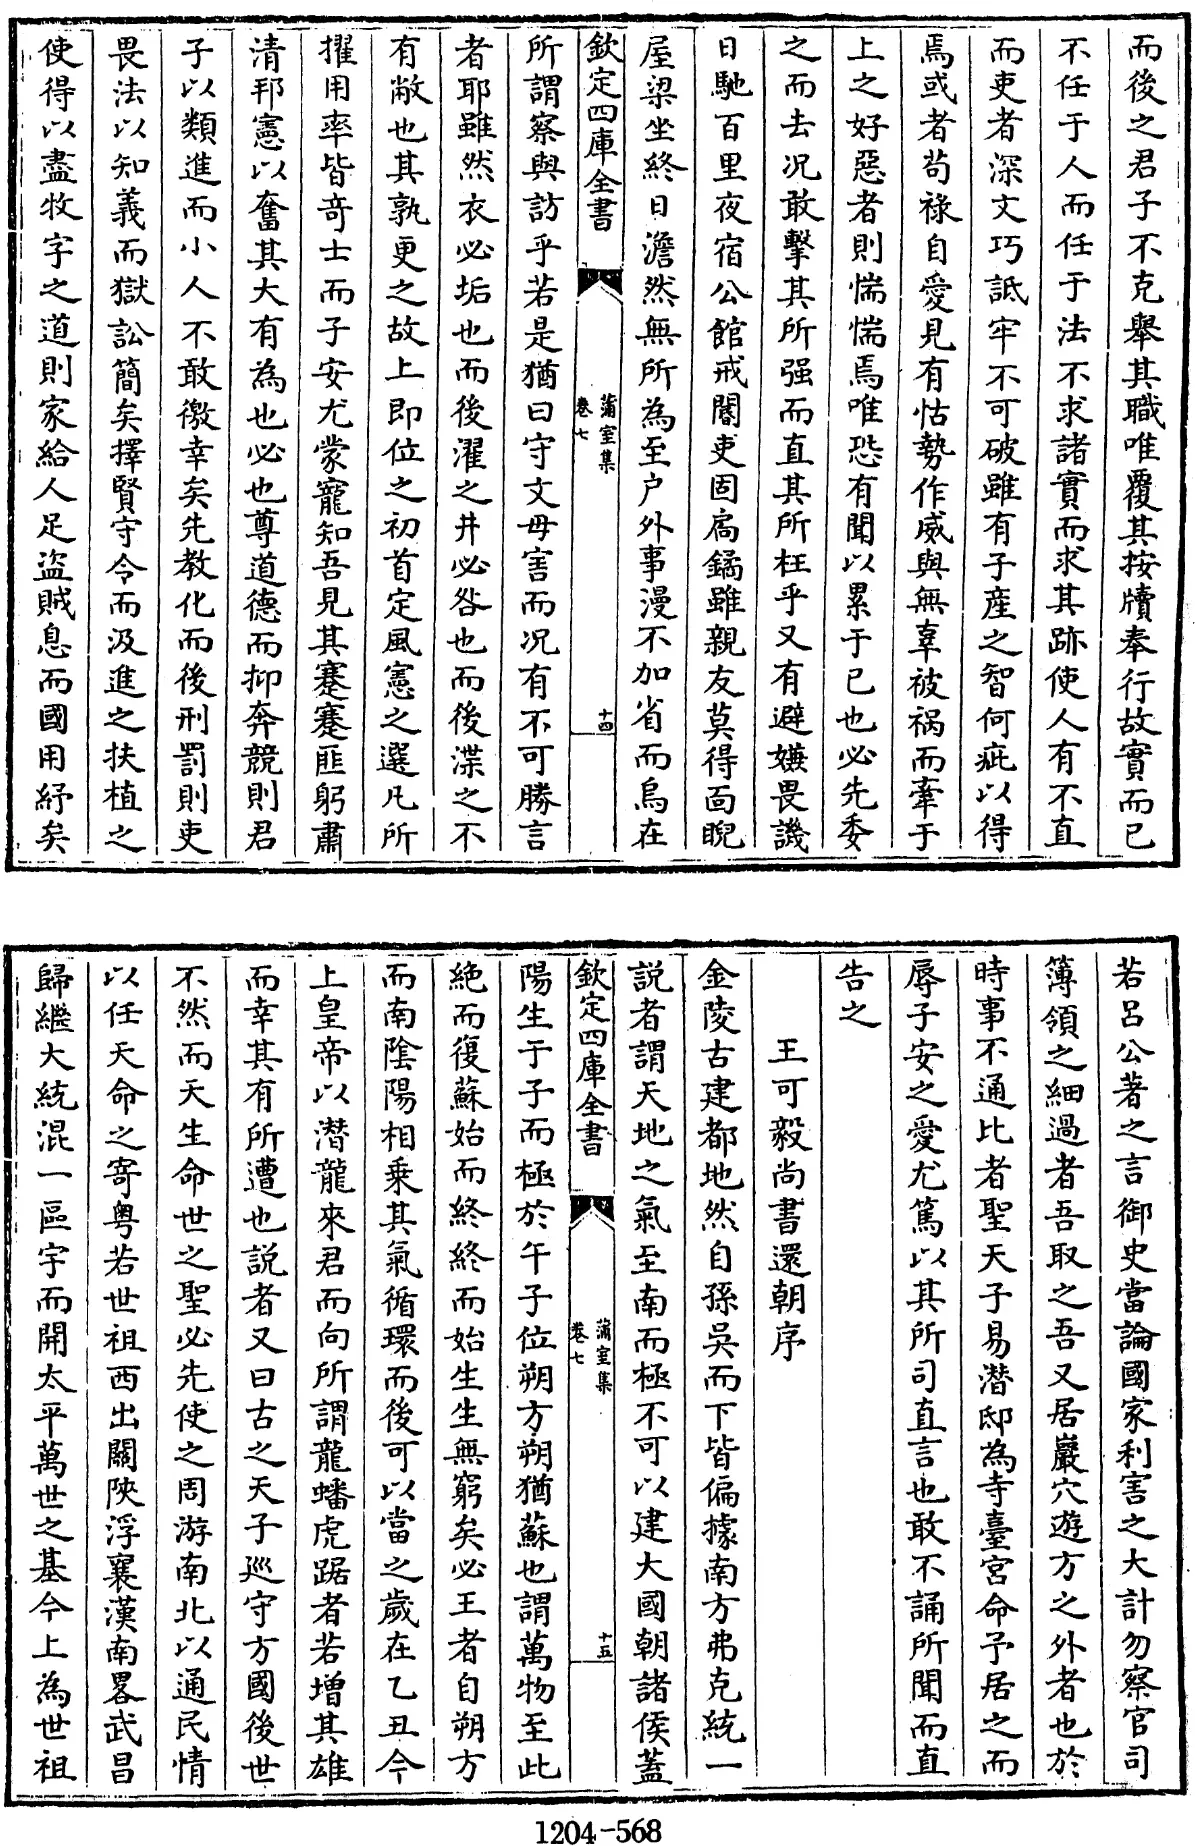 而後之君子不克舉其職唯覆其按牘奉行故實而已
不任于人而任于法不求諸實而求其跡使人有不直
而吏者深文巧詆牢不可破雖有子產之智何疵以得
焉或者苟祿自愛見有怙勢作威與無辜被禍而牽于
上之好惡者則惴惴焉唯恐有聞以累于已也必先委
之而去况敢擊其所强而直其所枉乎又有避嫌畏譏
日馳百里夜宿公館戒閽吏固扃鐍雖親友莫得面睨
屋梁坐終日澹然無所為至户外事漫不加省而烏在
欽定四庫全書
蒲室集
卷七
十四
所謂察與訪乎若是猶曰守文毋害而况有不可勝言
者耶雖然衣必垢也而後濯之井必咎也而後渫之不
有敝也其孰更之故上即位之初首定風憲之選凡所
擢用率皆竒士而子安尤蒙寵知吾見其蹇蹇匪躬肅
清邦憲以奮其大有為也必也尊道德而抑奔競則君
子以類進而小人不敢徼幸矣先教化而後刑罰則吏
畏法以知義而獄訟簡矣擇賢守令而汲進之扶植之
使得以盡牧字之道則家給人足盜賊息而國用紓矣
若吕公著之言御史當論國家利害之大計勿察官司
簿領之細過者吾取之吾又居巖穴遊方之外者也於
時事不通比者聖天子易潛邸為寺臺宮命予居之而
辱子安之愛尤篤以其所司直言也敢不誦所聞而直
告之
王可毅尚書還朝序
金陵古建都地然自孫吳而下皆偏據南方弗克統一
説者謂天地之氣至南而極不可以建大國朝諸侯蓋
欽定四庫全書
蒲室集
卷七
十五
陽生于子而極於午子位朔方朔猶蘇也謂萬物至此
絶而復蘇始而終終而始生生無窮矣必王者自朔方
而南陰陽相乗其氣循環而後可以當之歲在乙丑今
上皇帝以潛龍來君而向所謂龍蟠虎踞者若增其雄
而幸其有所遭也説者又曰古之天子廵守方國後世
不然而天生命世之聖必先使之周游南北以通民情
以任天命之寄粤若世祖西出關陜浮襄漢南畧武昌
歸繼大統混一區宇而開太平萬世之基今上為世祖
1204-568